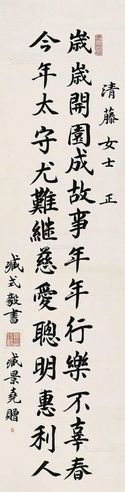 清藤女士 正
歲歲開園成故事年年行樂不辜春
今年太守尤難繼慈愛聰明惠利人
臧式毅書
臧景堯贈